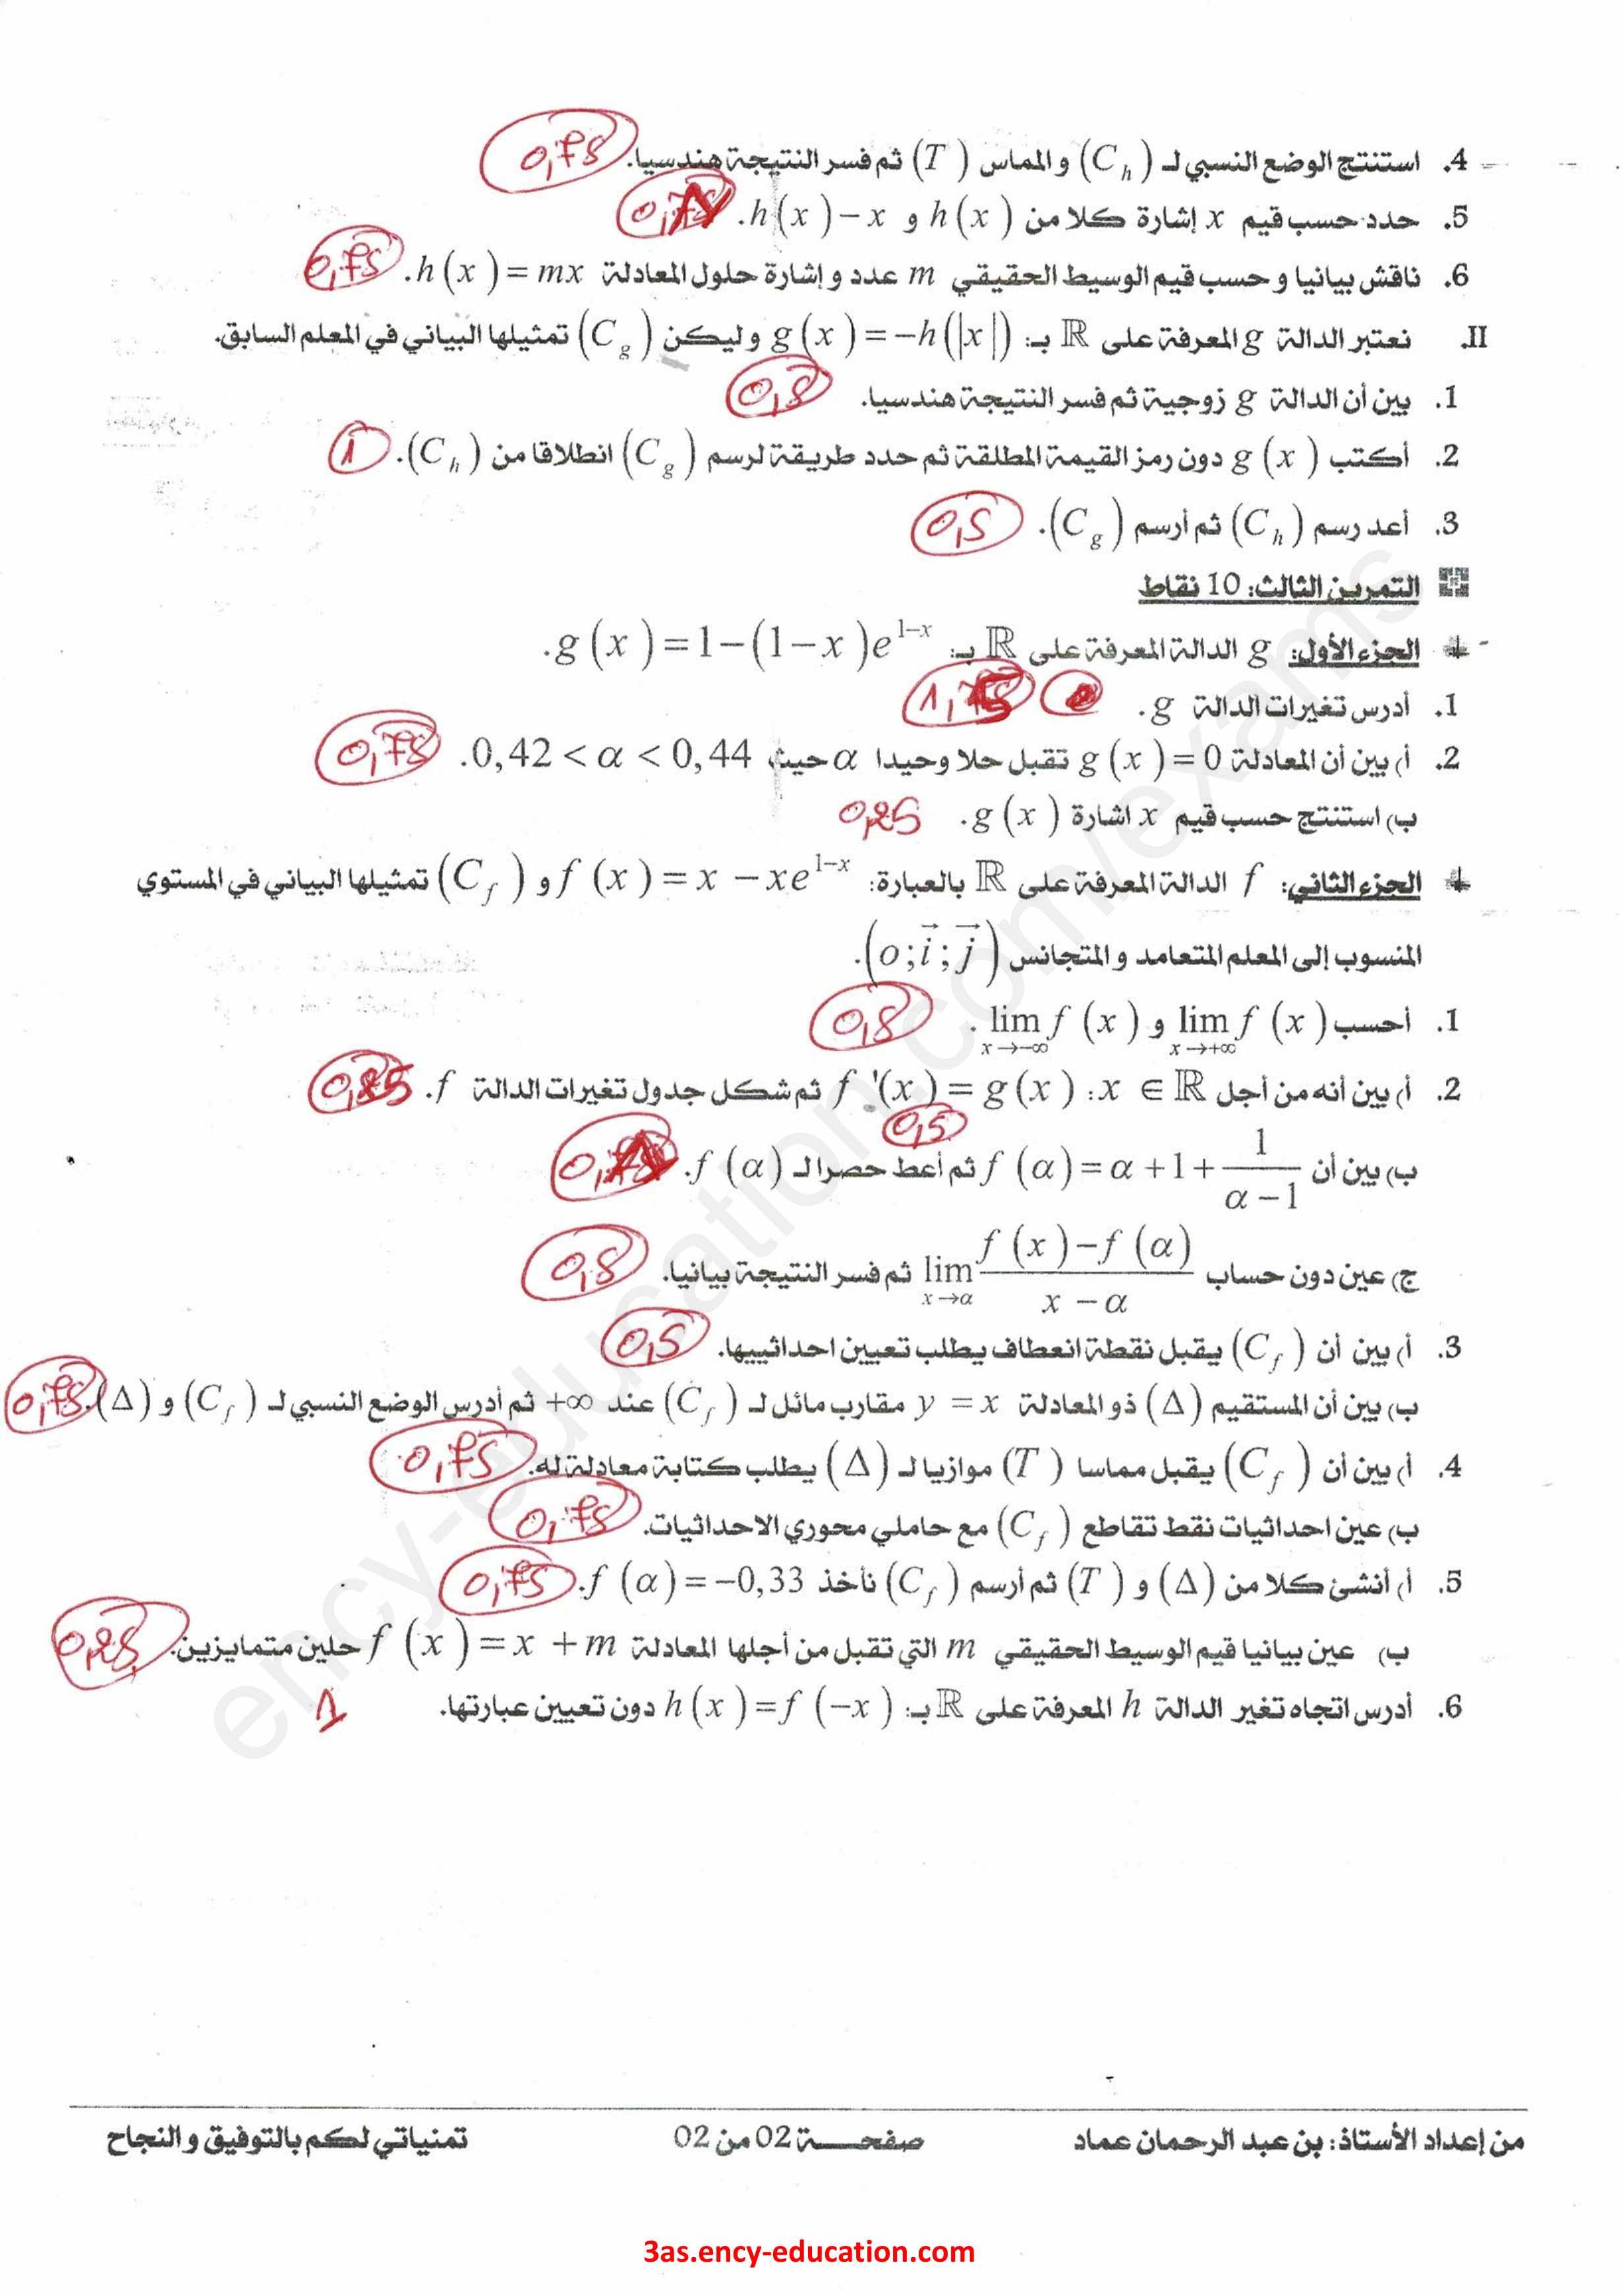 4. استنتج الوضع النسبي لـ (C_h) و المماس (T) ثم فسر النتيجة هندسيا. 0,75
5. حدد حسب قيم x إشارة كلا من h(x) و h(x)−x.
6. ناقش بيانيا و حسب قيم الوسيط الحقيقي m عدد و إشارة حلول المعادلة h(x)=mx. 0,75
II. نعتبر الدالة g المعرفة على ℝ بـ: g(x)=−h(|x|) وليكن (C_g) تمثيلها البياني في المعلم السابق.
1. بين أن الدالة g زوجية ثم فسر النتيجة هندسيا. 0,5
2. أكتب g(x) دون رمز القيمة المطلقة ثم حدد طريقة لرسم (C_g) انطلاقا من (C_h). 1
3. أعد رسم (C_h) ثم أرسم (C_g). 0,5
التمرين الثالث: 10 نقاط
الجزء الأول: g الدالة المعرفة على ℝ بـ: g(x)=1−(1−x)e^{1−x}.
1. أدرس تغيرات الدالة g. 1,75
2. أ) بين أن المعادلة g(x)=0 تقبل حلا وحيدا α حيث 0,42<α<0,44. 0,75
ب) استنتج حسب قيم x اشارة g(x). 0,25
الجزء الثاني: f الدالة المعرفة على ℝ بالعبارة: f(x)=x−xe^{1−x} و (C_f) تمثيلها البياني في المستوي
المنسوب إلى المعلم المتعامد و المتجانس (o;i⃗;j⃗).
1. أحسب lim_{x→+∞} f(x) و lim_{x→−∞} f(x). 0,5
2. أ) بين أنه من أجل x∈ℝ: f'(x)=g(x) ثم شكل جدول تغيرات الدالة f.
0,5
ب) بين أن f(α)=α+1+1/(α−1) ثم أعط حصرا لـ f(α).
ج) عين دون حساب lim_{x→α} (f(x)−f(α))/(x−α) ثم فسر النتيجة بيانيا. 0,5
3. أ) بين أن (C_f) يقبل نقطة انعطاف يطلب تعيين احداثييها. 0,5
ب) بين أن المستقيم (Δ) ذو المعادلة y=x مقارب مائل لـ (C_f) عند +∞ ثم أدرس الوضع النسبي لـ (C_f) و (Δ). 0,75
4. أ) بين أن (C_f) يقبل مماسا (T) موازيا لـ (Δ) يطلب كتابة معادلة له. 0,75
ب) عين احداثيات نقط تقاطع (C_f) مع حاملي محوري الاحداثيات. 0,75
5. أ) أنشئ كلا من (Δ) و (T) ثم أرسم (C_f) نأخذ f(α)=−0,33. 0,75
ب) عين بيانيا قيم الوسيط الحقيقي m التي تقبل من أجلها المعادلة f(x)=x+m حلين متمايزين. 0,25
6. أدرس اتجاه تغير الدالة h المعرفة على ℝ بـ: h(x)=f(−x) دون تعيين عبارتها. 1
من إعداد الأستاذ: بن عبد الرحمان عماد صفحة 02 من 02 تمنياتي لكم بالتوفيق و النجاح
3as.ency-education.com
ency-education.com/exams